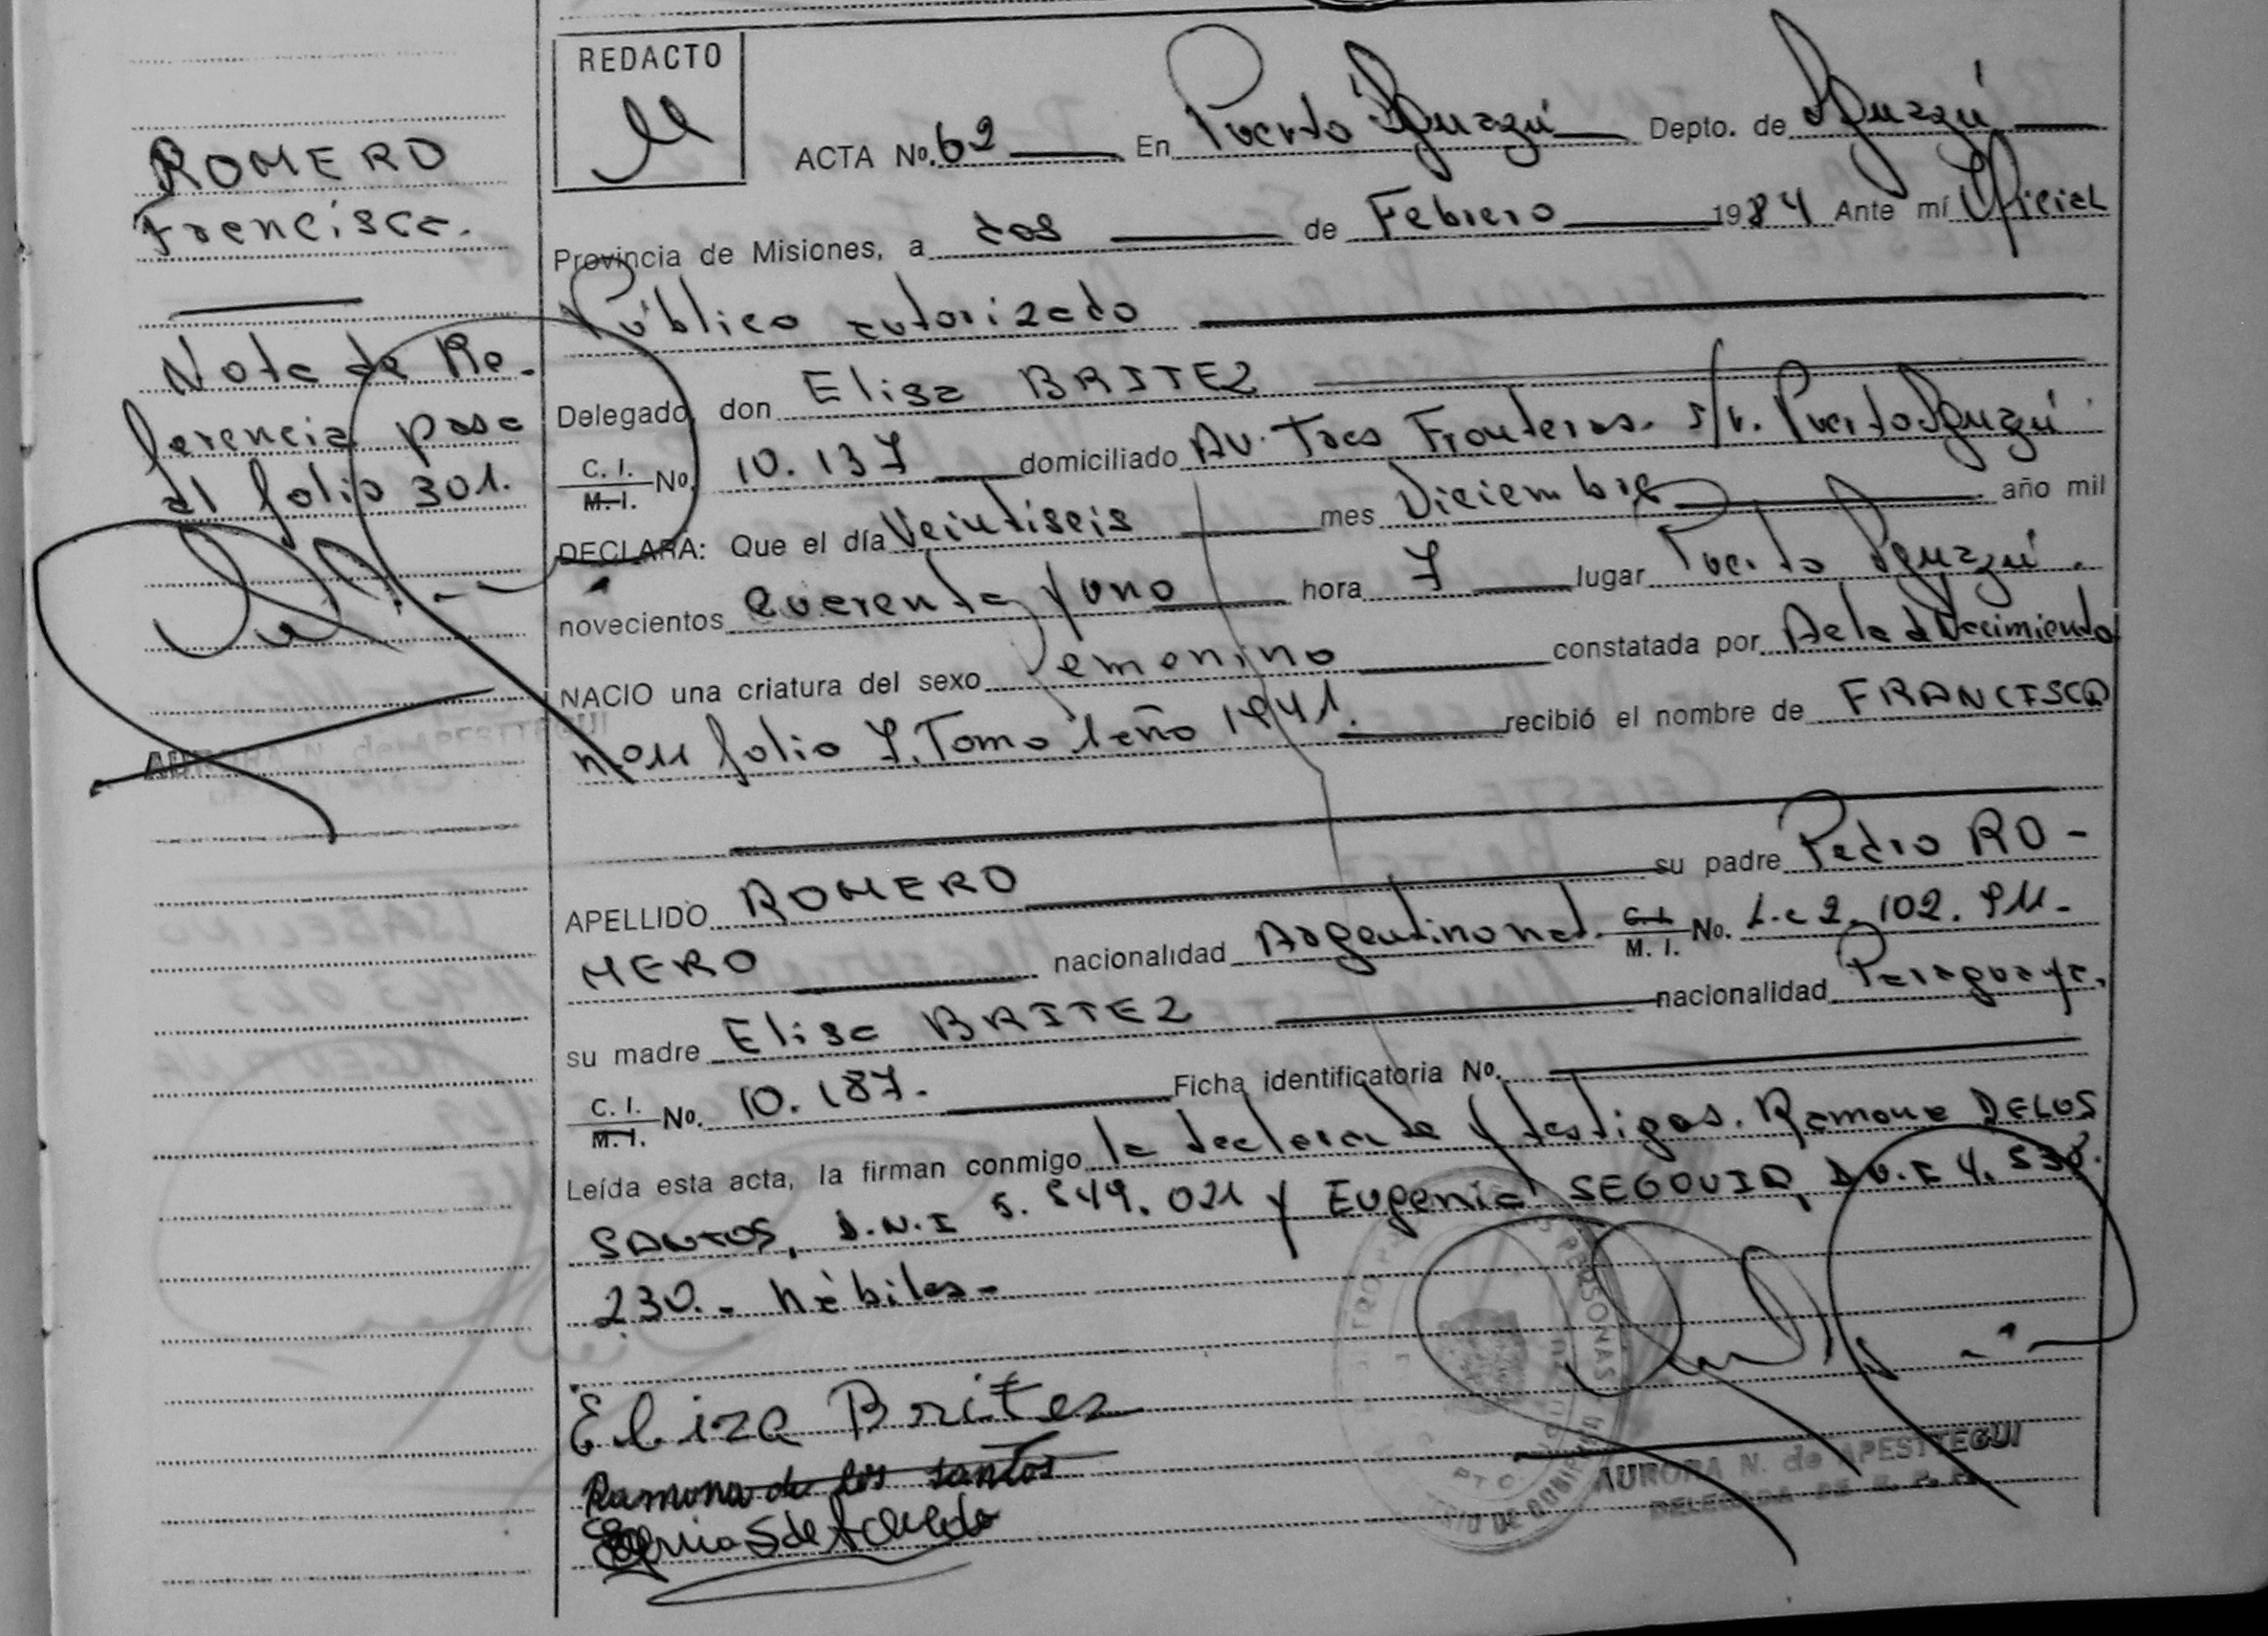 ROMERO
Francisca.
Nota de Re-
ferencia pasa
al folio 301.
REDACTO
ACTA No. 62 En Puerto Iguazú Depto. de Iguazú
Provincia de Misiones, a dos de Febrero 1984 Ante mí Oficial
Público autorizado
Delegado, don Elisa BRITEZ
C. I. M. I. No. 10.137 domiciliado Av. Tres Fronteras. s/n. Puerto Iguazú
DECLARA: Que el día Veintiseis mes Diciembre año mil
novecientos Cuarenta y uno hora 7 lugar Puerto Iguazú.
NACIO una criatura del sexo Femenino constatada por Acta d Nacimiento
nº 11 folio 7. Tomo 1 año 1941. recibió el nombre de FRANCISCA
APELLIDO ROMERO su padre Pedro RO-
MERO nacionalidad Argentino nat. C. I. M. I. No. L.e 2.102.911.
su madre Elisa BRITEZ nacionalidad Paraguaya.
C. I. M. I. No. 10.187. Ficha identificatoria No.
Leída esta acta, la firman conmigo la declarante y testigos. Ramona DELOS
SANTOS, D.N.I 5.849.021 y Eugenia SEGOVIA, D.N.I 4.538.
230.- hábiles-
Eliza Britez
Ramona de los santos
S de Acevedo
AURORA N. de APESTTEGUI
DELEGADA DE R. P. P.